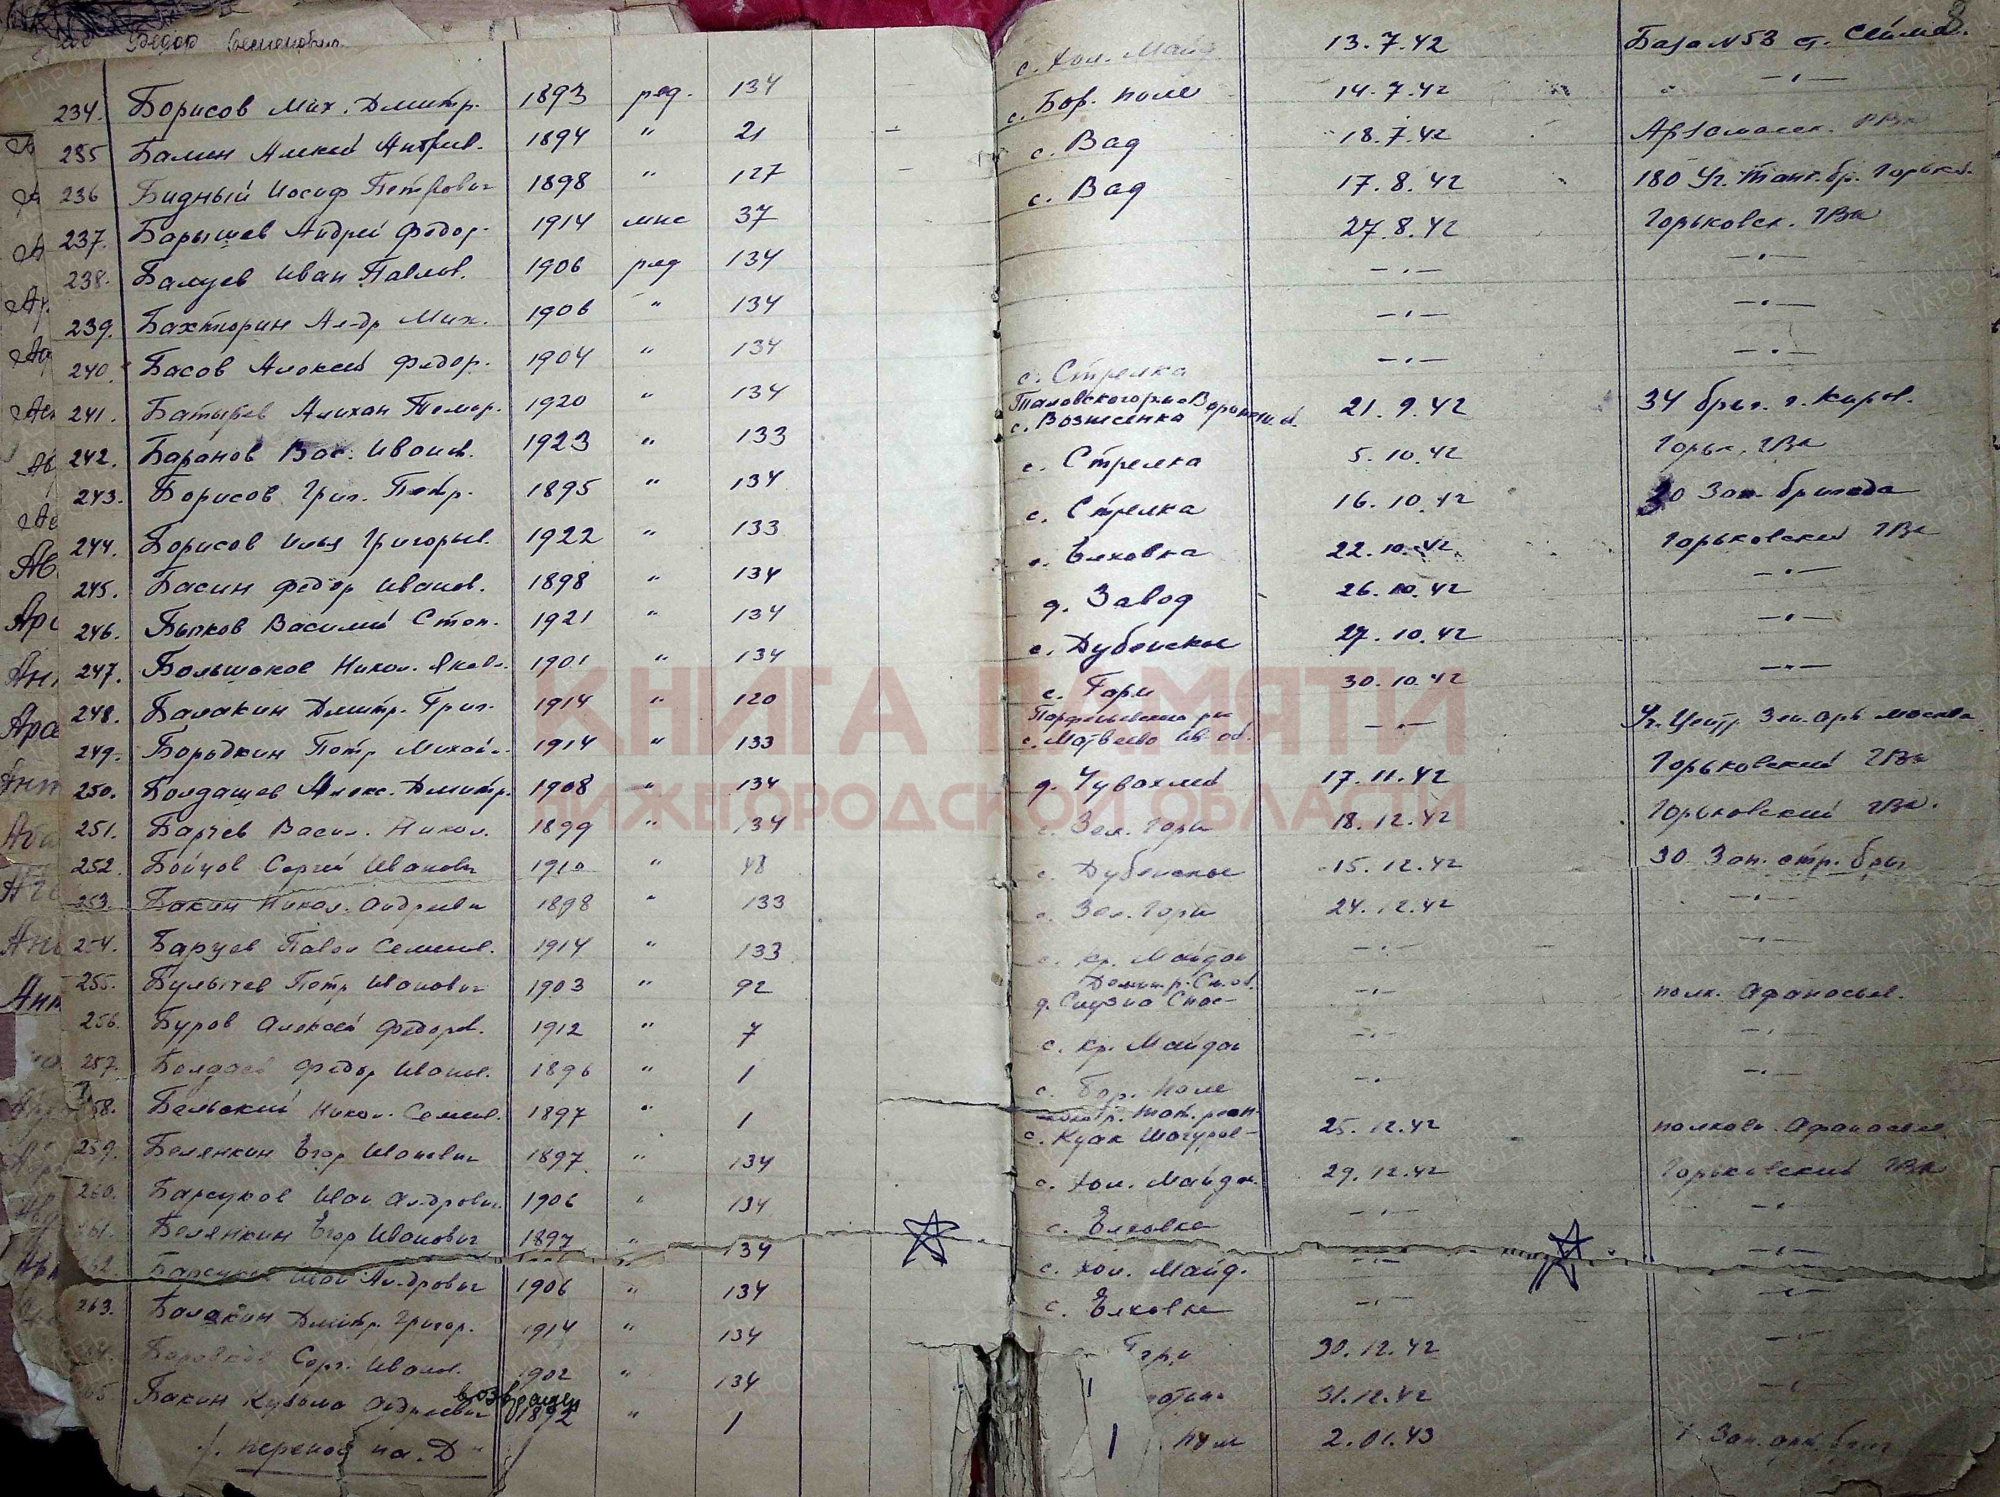 Федор Семенович
8
с. Хол. Майд. 13.7.42 База N 53 ст. Сейма.
234. Борисов Мих. Дмитр. 1893 ряд. 134 с. Бор. поле 14.7.42 —〃—
235 Балин Алексей Андреев. 1894 〃 21 — с. Вад 18.7.42 Арзамасск. РВк
236 Бидный Иосиф Петрович 1898 〃 127 — с. Вад 17.8.42 180 Уч. Танк. бр. Горьк.
237. Барышев Андрей Федор. 1914 мнс 37 27.8.42 Горьковск. ГВк
238. Балуев Иван Павлов. 1906 ряд 134 —〃— —〃—
239. Бахтюрин Ал-др Мих. 1906 〃 134 —〃— —〃—
240. Басов Алексей Федор. 1904 〃 134 с. Стрелка —〃— —〃—
241. Батырев Алихан Темир. 1920 〃 134 Таловского р-на Воронеж. об. с. Вознесенка 21.9.42 34 бриг. г. Киров.
242. Баранов Вас. Иванов. 1923 〃 133 с. Стрелка 5.10.42 Горьк. ГВк
243. Борисов Григ. Петр. 1895 〃 134 с. Стрелка 16.10.42 30 Зап. бригада
244. Борисов Илья Григорьев. 1922 〃 133 с. Елховка 22.10.42 Горьковский ГВк
245. Басин Федор Иванов. 1898 〃 134 д. Завод 26.10.42 —〃—
246. Бычков Василий Степ. 1921 〃 134 с. Дубенское 27.10.42 —〃—
247. Большаков Никол. Яковл. 1901 〃 134 с. Гари 30.10.42 —〃—
248. Балакин Дмитр. Григ. 1914 〃 120 Парфеньевский р-н с. Матвеево Ив. об. —〃— Уч. Центр Зен. арт. Москва
249. Бородкин Петр Михайл. 1914 〃 133 д. Чувахлей 17.11.42 Горьковский ГВк
250. Болдашев Алекс. Дмитр. 1908 〃 134 с. Зел. Горы 18.12.42 Горьковский ГВк.
251. Барчев Васил. Никол. 1899 〃 134 с. Дубенское 15.12.42 30 Зап. стр. бриг
252. Бойцов Сергей Иванович 1910 〃 48 с. Зел. Горы 24.12.42 —〃—
253. Бакин Никол. Андреевич 1898 〃 133 с. Кр. Майдан —〃— —〃—
254. Баруев Павел Семенов. 1914 〃 133 —〃— полк. Афанасьев.
255. Булычев Петр Иванович 1903 〃 92 —〃— —〃—
256. Буров Алексей Федоров. 1912 〃 7 с. Кр. Майдан —〃— —〃—
257. Балдаев Федор Иванов. 1896 〃 1 с. Бор. поле
258. Бельский Никол. Семенов. 1897 〃 1 с. Куак Шагуров- 25.12.42 полковн. Афанасьев
259. Белянкин Егор Иванович 1897 〃 134 с. Хол. Майдан. 29.12.42 Горьковский ГВк
260. Барсуков Иван Ал-дрович 1906 〃 134 с. Елховка —〃— —〃—
261. Белянкин Егор Иванович 1897 〃 134 с. Хол. Майд. —〃— —〃—
262. Барсуков Иван Ал-дрович 1906 〃 134 с. Елховка —〃— —〃—
263. Балакин Дмитр. Григор. 1914 〃 134 30.12.42 —〃—
Боровков Серг. Иванов. 1902 〃 134 31.12.42 —〃—
возвращен
Бакин Кузьма Андреевич 1892 〃 1 2.01.43 Зап. арт. бриг
перенос на „Д"
КНИГА ПАМЯТИ
НИЖЕГОРОДСКОЙ ОБЛАСТИ